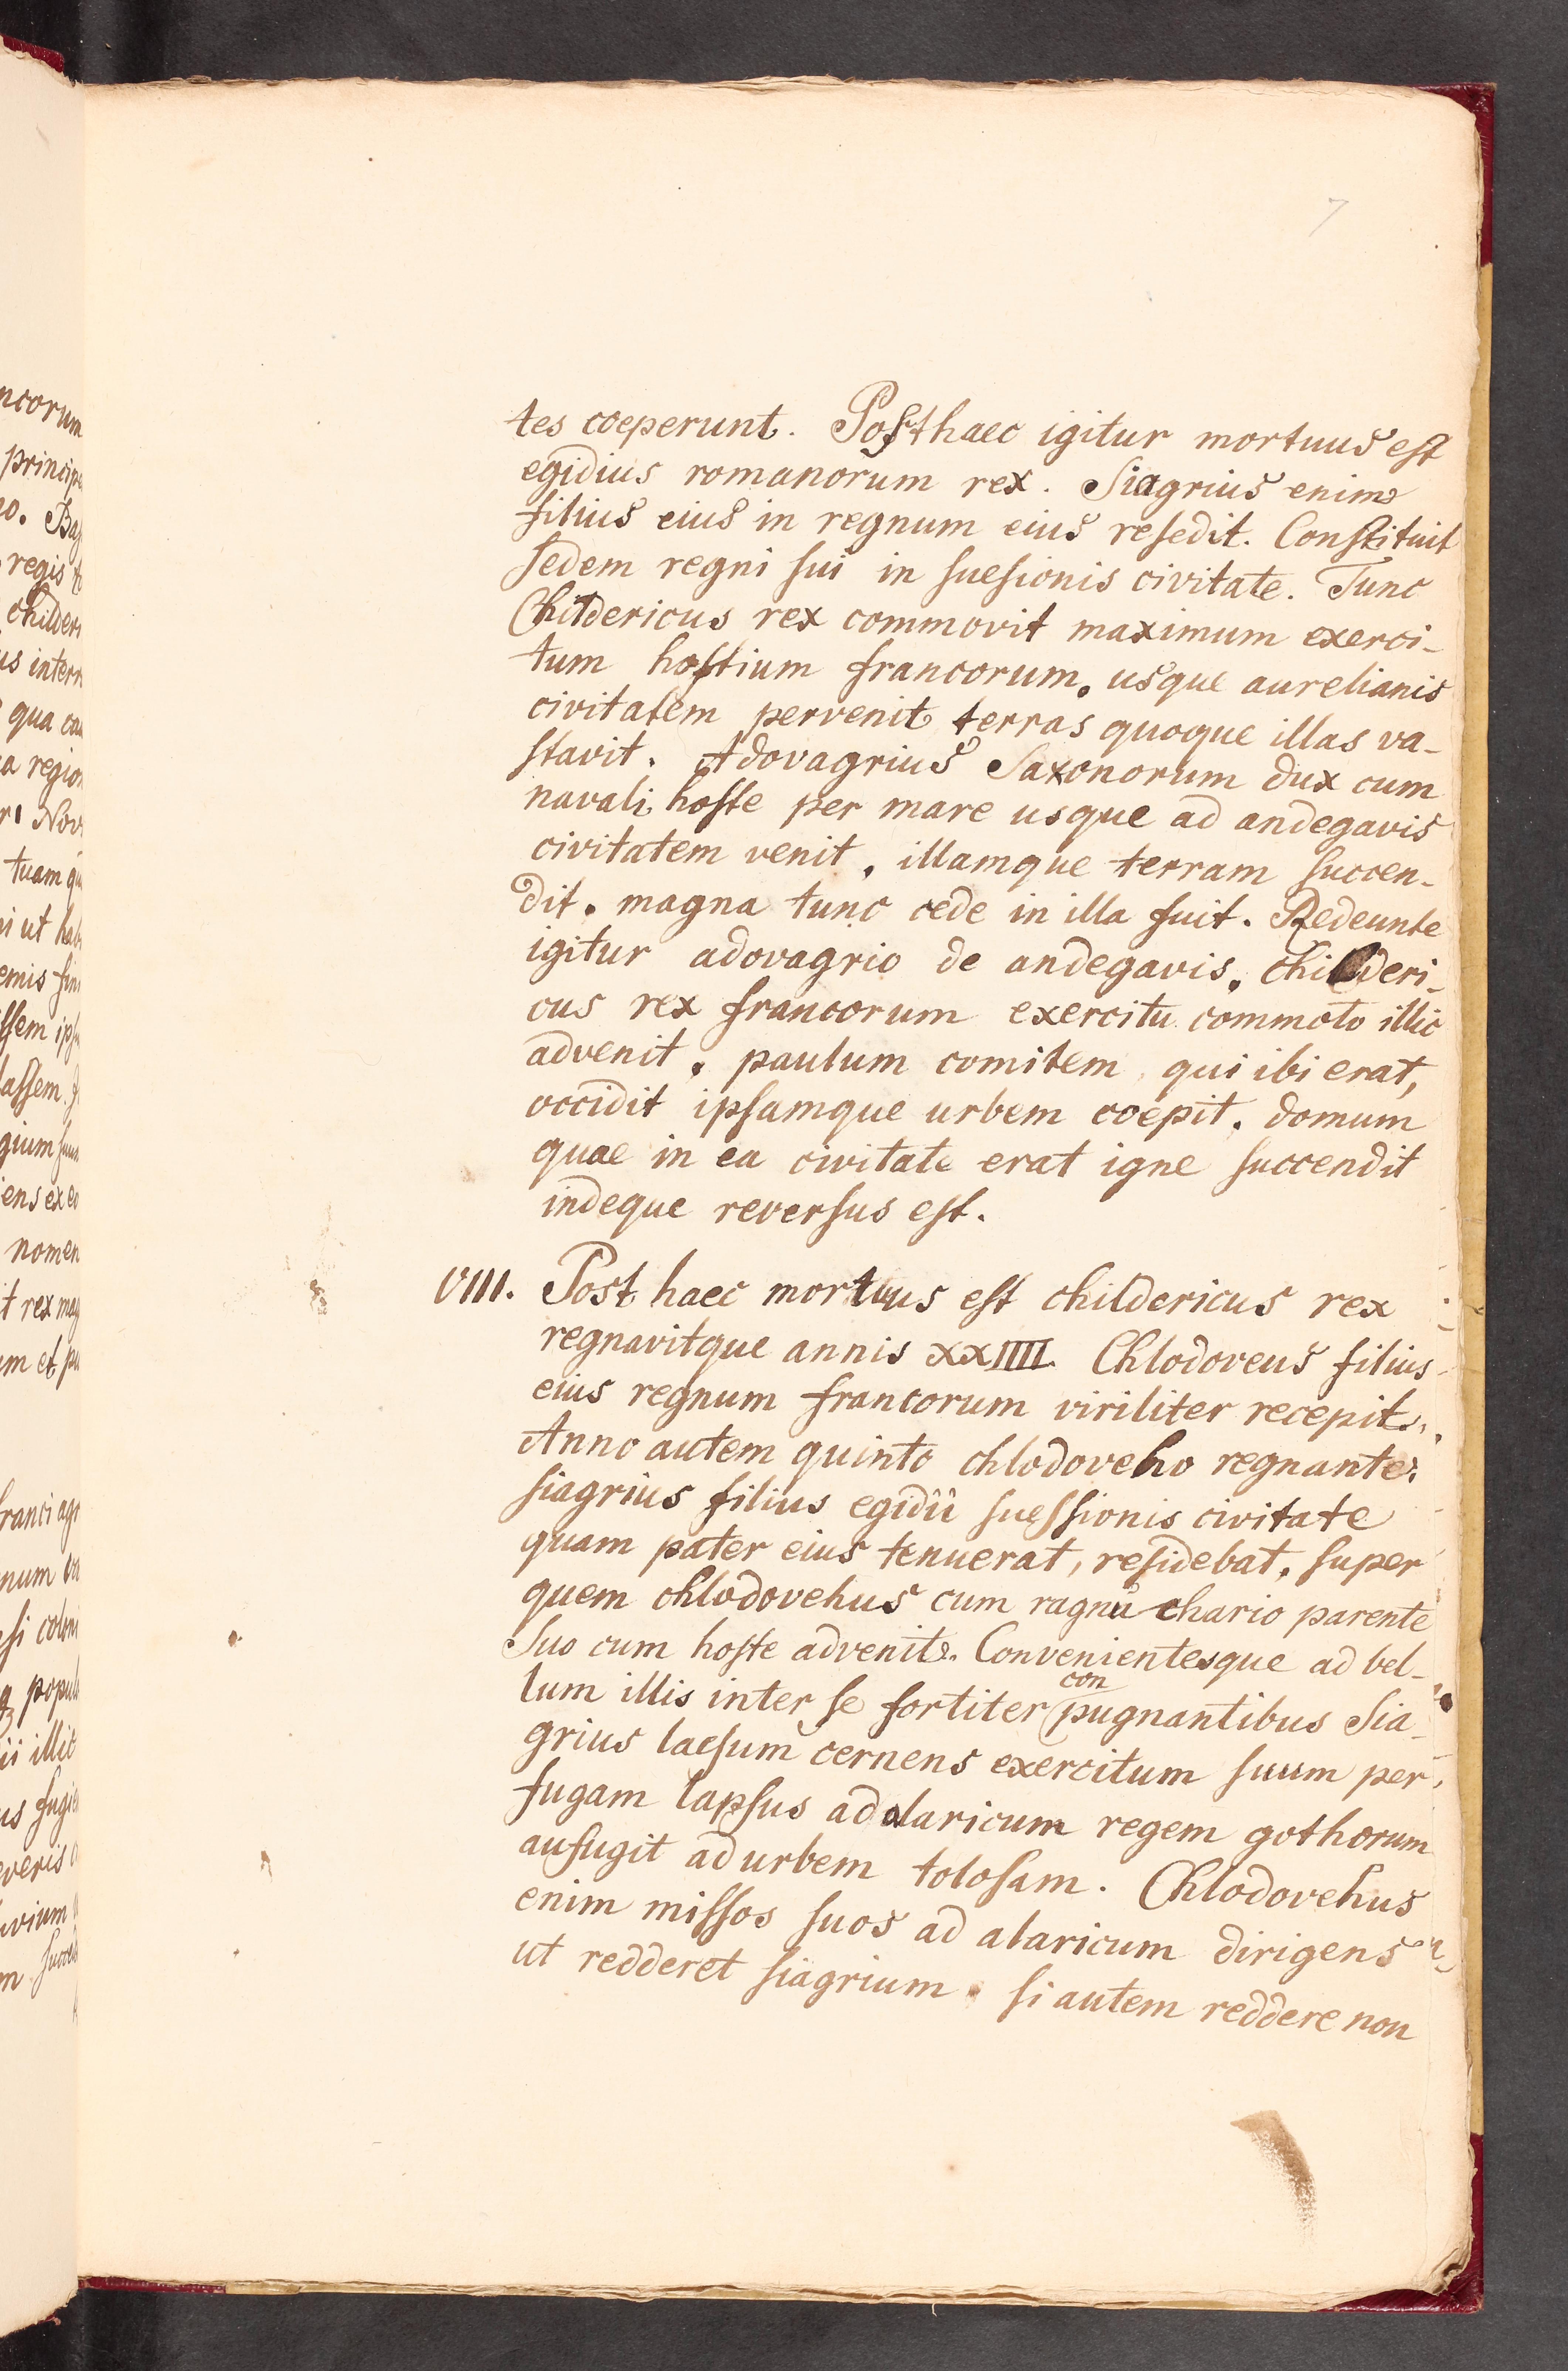 7
tes coeperunt. Post haec igitur mortuus est
egidius romanorum rex. Siagrius enim
filius eius in regnum eius resedit. Constituit
Sedem regni sui in suesionis civitate. Tunc
Childericus rex commovit maximum exerci-
tum hostium francorum. usque aurelianis
civitatem pervenit terras quoque illas va-
stavit. Adovagrius Saxonorum dux cum
navali hoste per mare usque ad andegavis
civitatem venit. illamque terram succen-
dit. magna tunc cede in illa fuit. Redeunte
igitur adovagrio de andegavis. childeri-
cus rex francorum exercitu commoto illic
advenit. paulum comitem qui ibi erat,
occidit ipsamque urbem coepit. domum
quae in ea civitate erat igne succendit
indeque reversus est.
VIII. Post haec mortuus est childericus rex
regnavitque annis XXIIII. Chlodoveus filius
eius regnum francorum viriliter recepit.
Anno autem quinto chlodoveho regnante.
siagrius filius egidii suessionis civitate
quam pater eius tenuerat, residebat. super
quem chlodovehus cum ragna chario parente
Suo cum hoste advenit. Convenientesque ad bel-
lum illis inter se fortiter con pugnantibus Sia-
grius laesum cernens exercitum suum per
fugam lapsus ad alaricum regem gothorum
aufugit ad urbem tolosam. Chlodovehus
enim missos suos ad alaricum dirigens
ut redderet siagrium. si autem reddere non